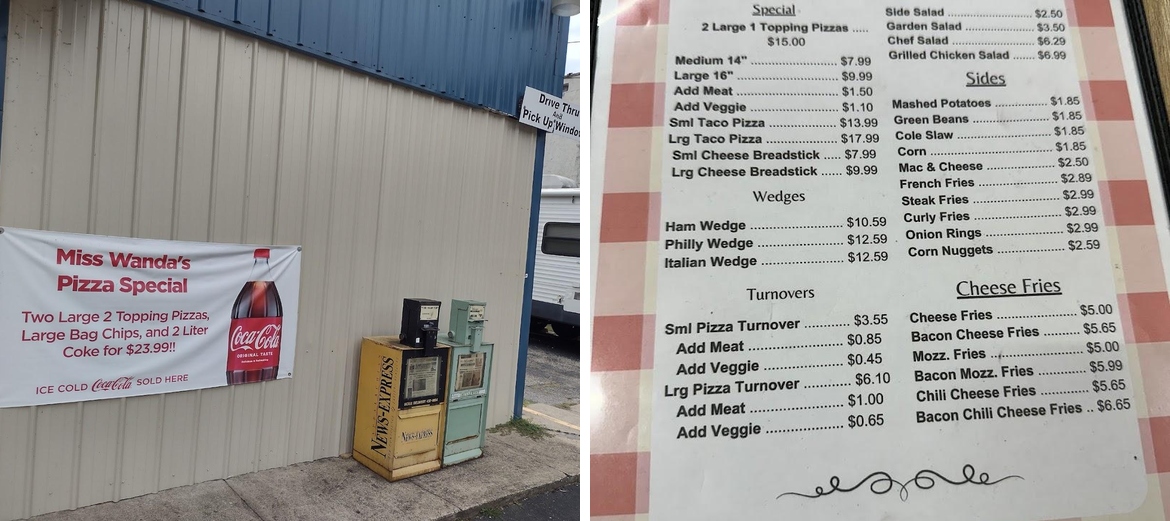 Drive Thru
And
Pick Up Window
Miss Wanda's
Pizza Special
Two Large 2 Topping Pizzas,
Large Bag Chips, and 2 Liter
Coke for $23.99!!
ICE COLD Coca-Cola SOLD HERE
Coca-Cola
ORIGINAL TASTE
NEWS-EXPRESS
NEWS-EXPRESS
Special
2 Large 1 Topping Pizzas .....
$15.00
Medium 14" ...................... $7.99
Large 16" ......................... $9.99
Add Meat ......................... $1.50
Add Veggie ...................... $1.10
Sml Taco Pizza ............... $13.99
Lrg Taco Pizza ................ $17.99
Sml Cheese Breadstick ..... $7.99
Lrg Cheese Breadstick ...... $9.99
Wedges
Ham Wedge .................... $10.59
Philly Wedge ................... $12.59
Italian Wedge .................. $12.59
Turnovers
Sml Pizza Turnover ........... $3.55
Add Meat ....................... $0.85
Add Veggie .................... $0.45
Lrg Pizza Turnover ............ $6.10
Add Meat ....................... $1.00
Add Veggie .................... $0.65
Side Salad ........................... $2.50
Garden Salad ...................... $3.50
Chef Salad .......................... $6.29
Grilled Chicken Salad ....... $6.99
Sides
Mashed Potatoes ............... $1.85
Green Beans ....................... $1.85
Cole Slaw ............................ $1.85
Corn ..................................... $1.85
Mac & Cheese ..................... $2.50
French Fries ........................ $2.89
Steak Fries .......................... $2.99
Curly Fries ........................... $2.99
Onion Rings ........................ $2.99
Corn Nuggets ..................... $2.59
Cheese Fries
Cheese Fries ....................... $5.00
Bacon Cheese Fries ............ $5.65
Mozz. Fries .......................... $5.00
Bacon Mozz. Fries ............... $5.99
Chili Cheese Fries ................ $5.65
Bacon Chili Cheese Fries .. $6.65